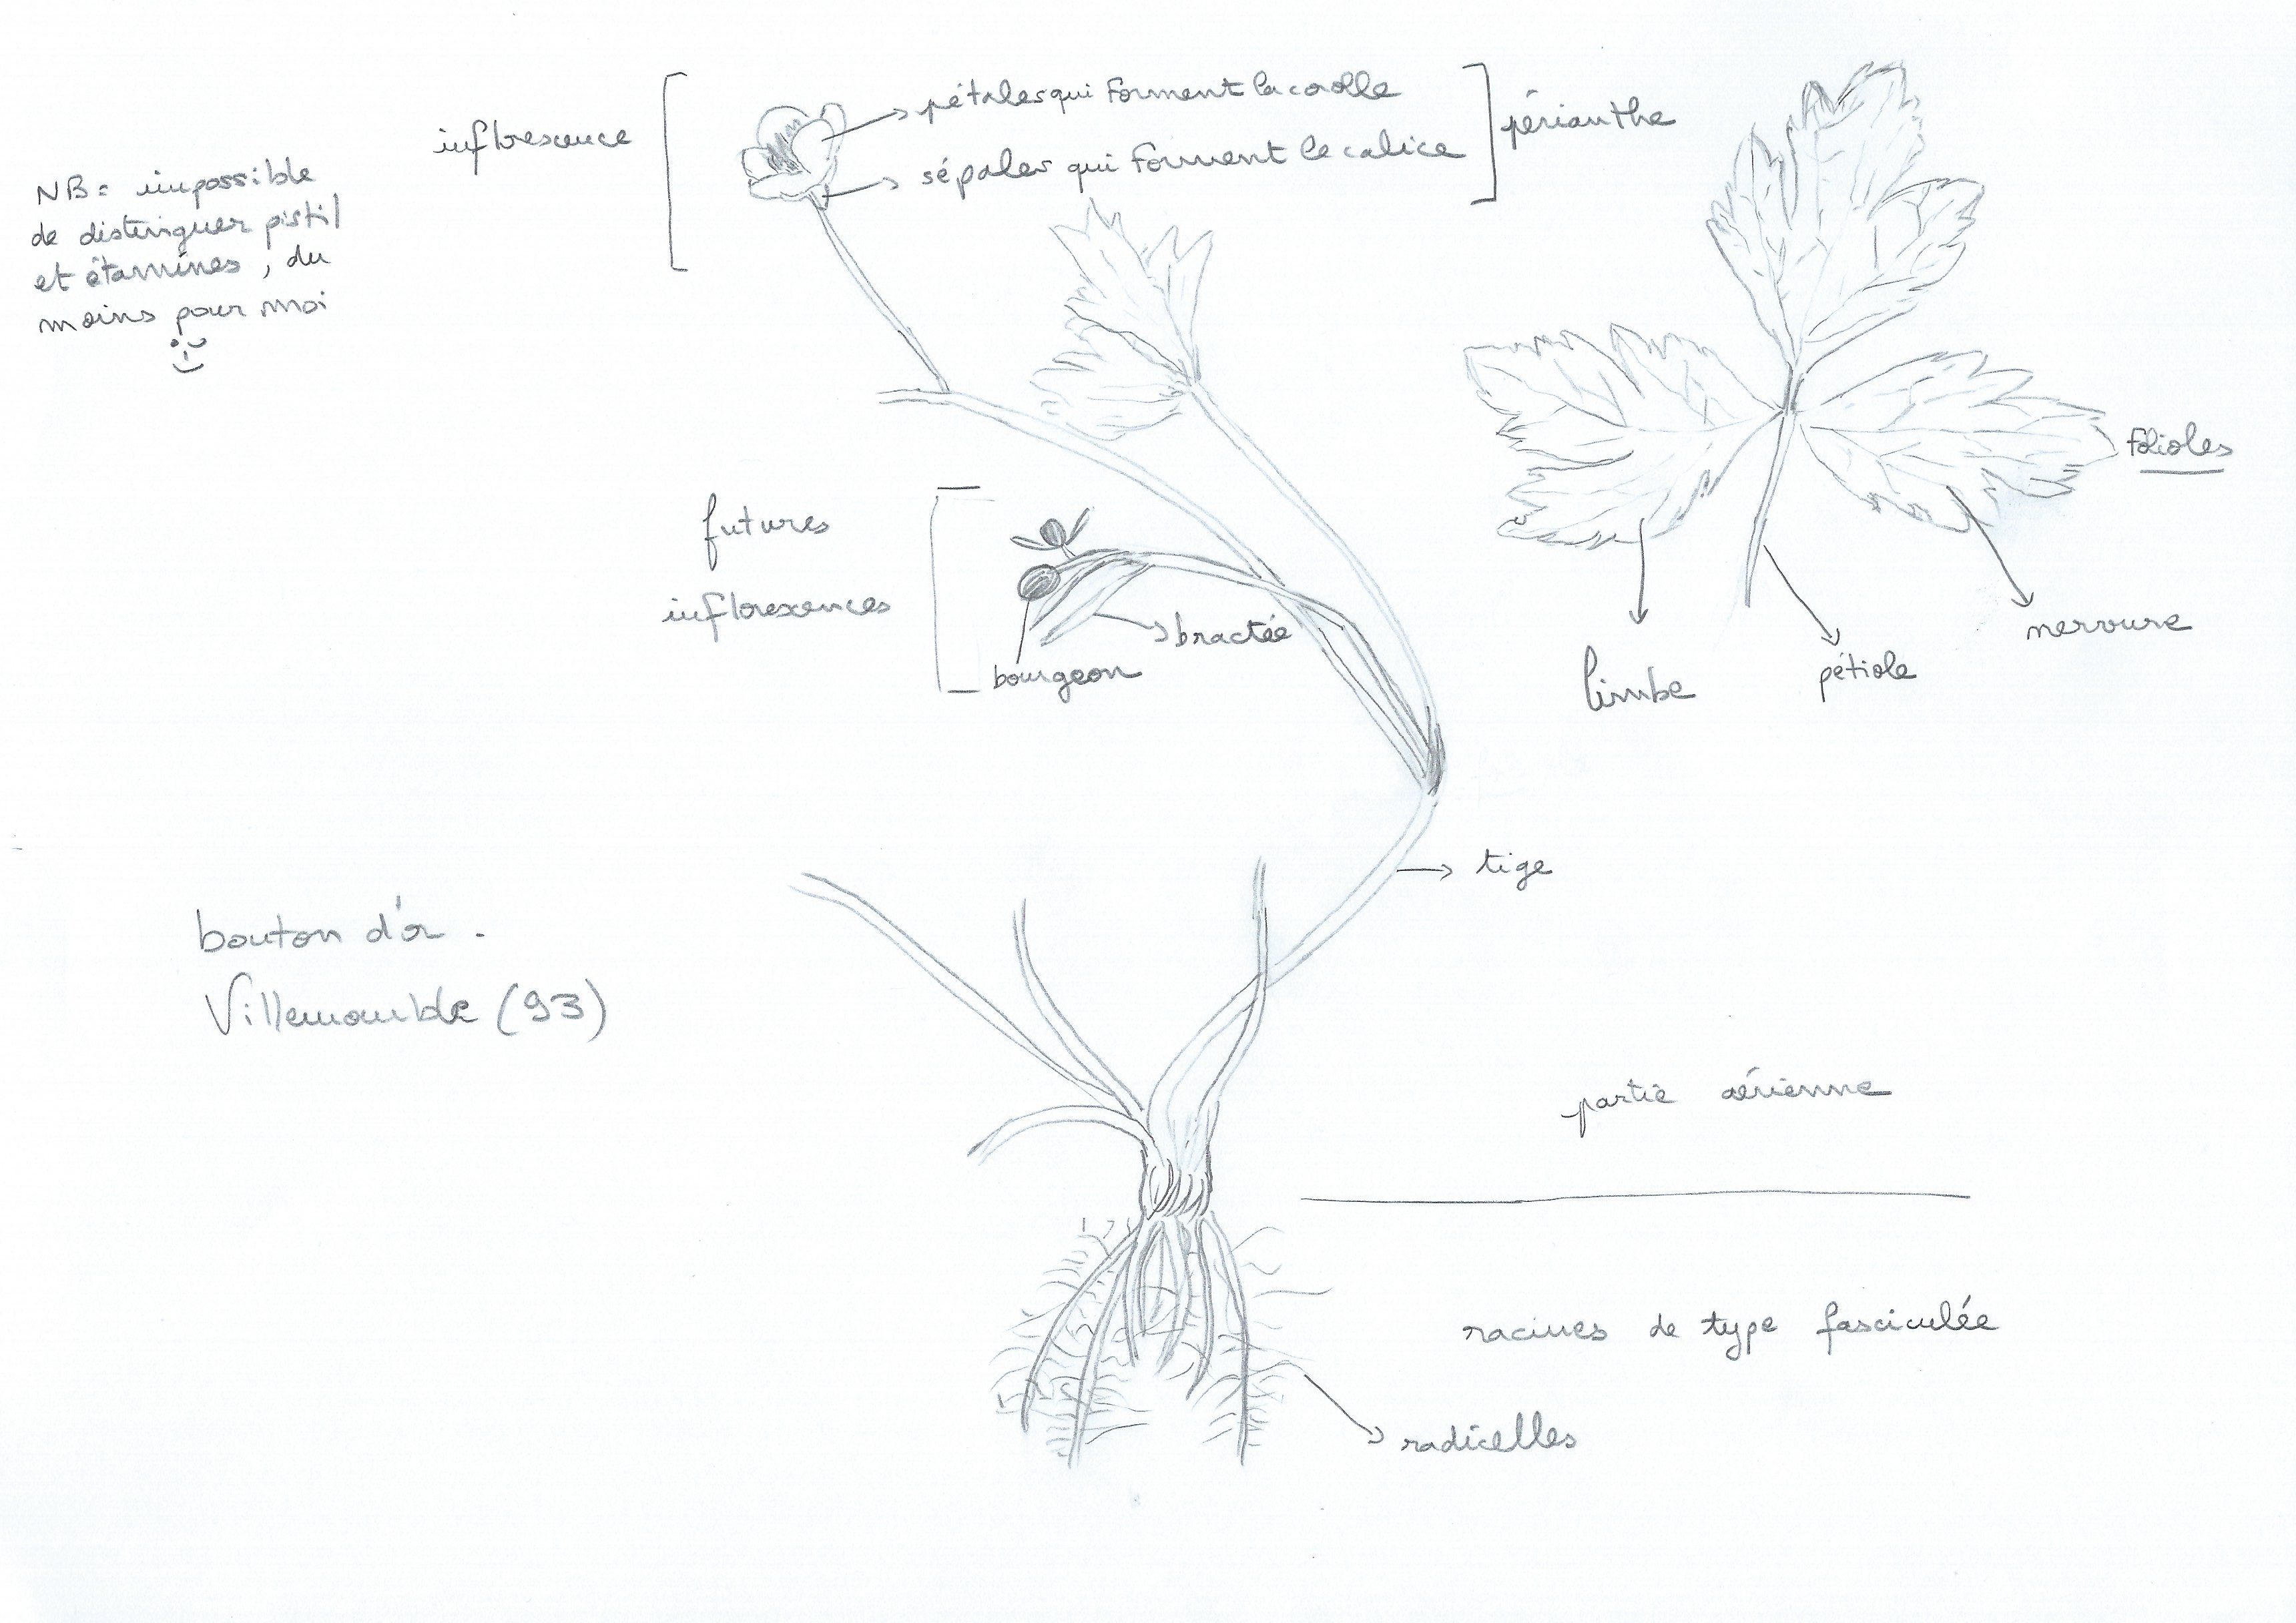 inflorescence
pétales qui Forment la corolle
sépales qui Forment le calice
périanthe
NB= impossible
de distinguer pistil
et étamines, du
moins pour moi
folioles
futures
inflorescences
bractée
bourgeon
limbe
pétiole
nervure
tige
bouton d'or.
Villemomble (93)
partie aérienne
racines de type fasciculée
radicelles